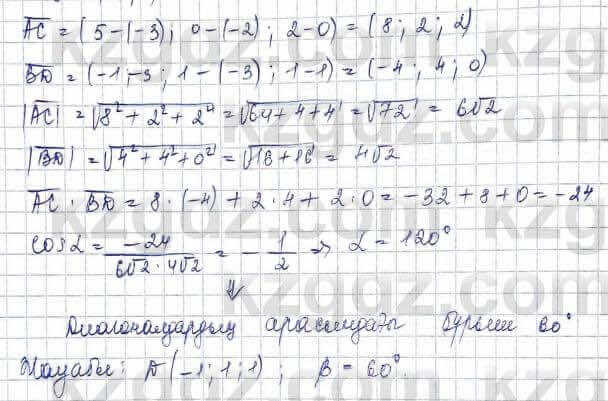 AC = (5-(-3); 0-(-2); 2-0) = (8; 2; 2)
BD = (-1;-3; 1-(-3); 1-1) = (-4; 4; 0)
|AC| = √8²+2²+2² = √64+4+4 = √72 = 6√2
|BD| = √4²+4²+0² = √16+16 = 4√2
AC · BD = 8·(-4)+2·4+2·0 = -32+8+0 = -24
cos α = -24/6√2·4√2 = -1/2 ⇒ α = 120°
⇓
Диагональдардың арасындағы бұрыш 60°
Жауабы: D(-1; 1; 1); β = 60°.
kzgdz.com